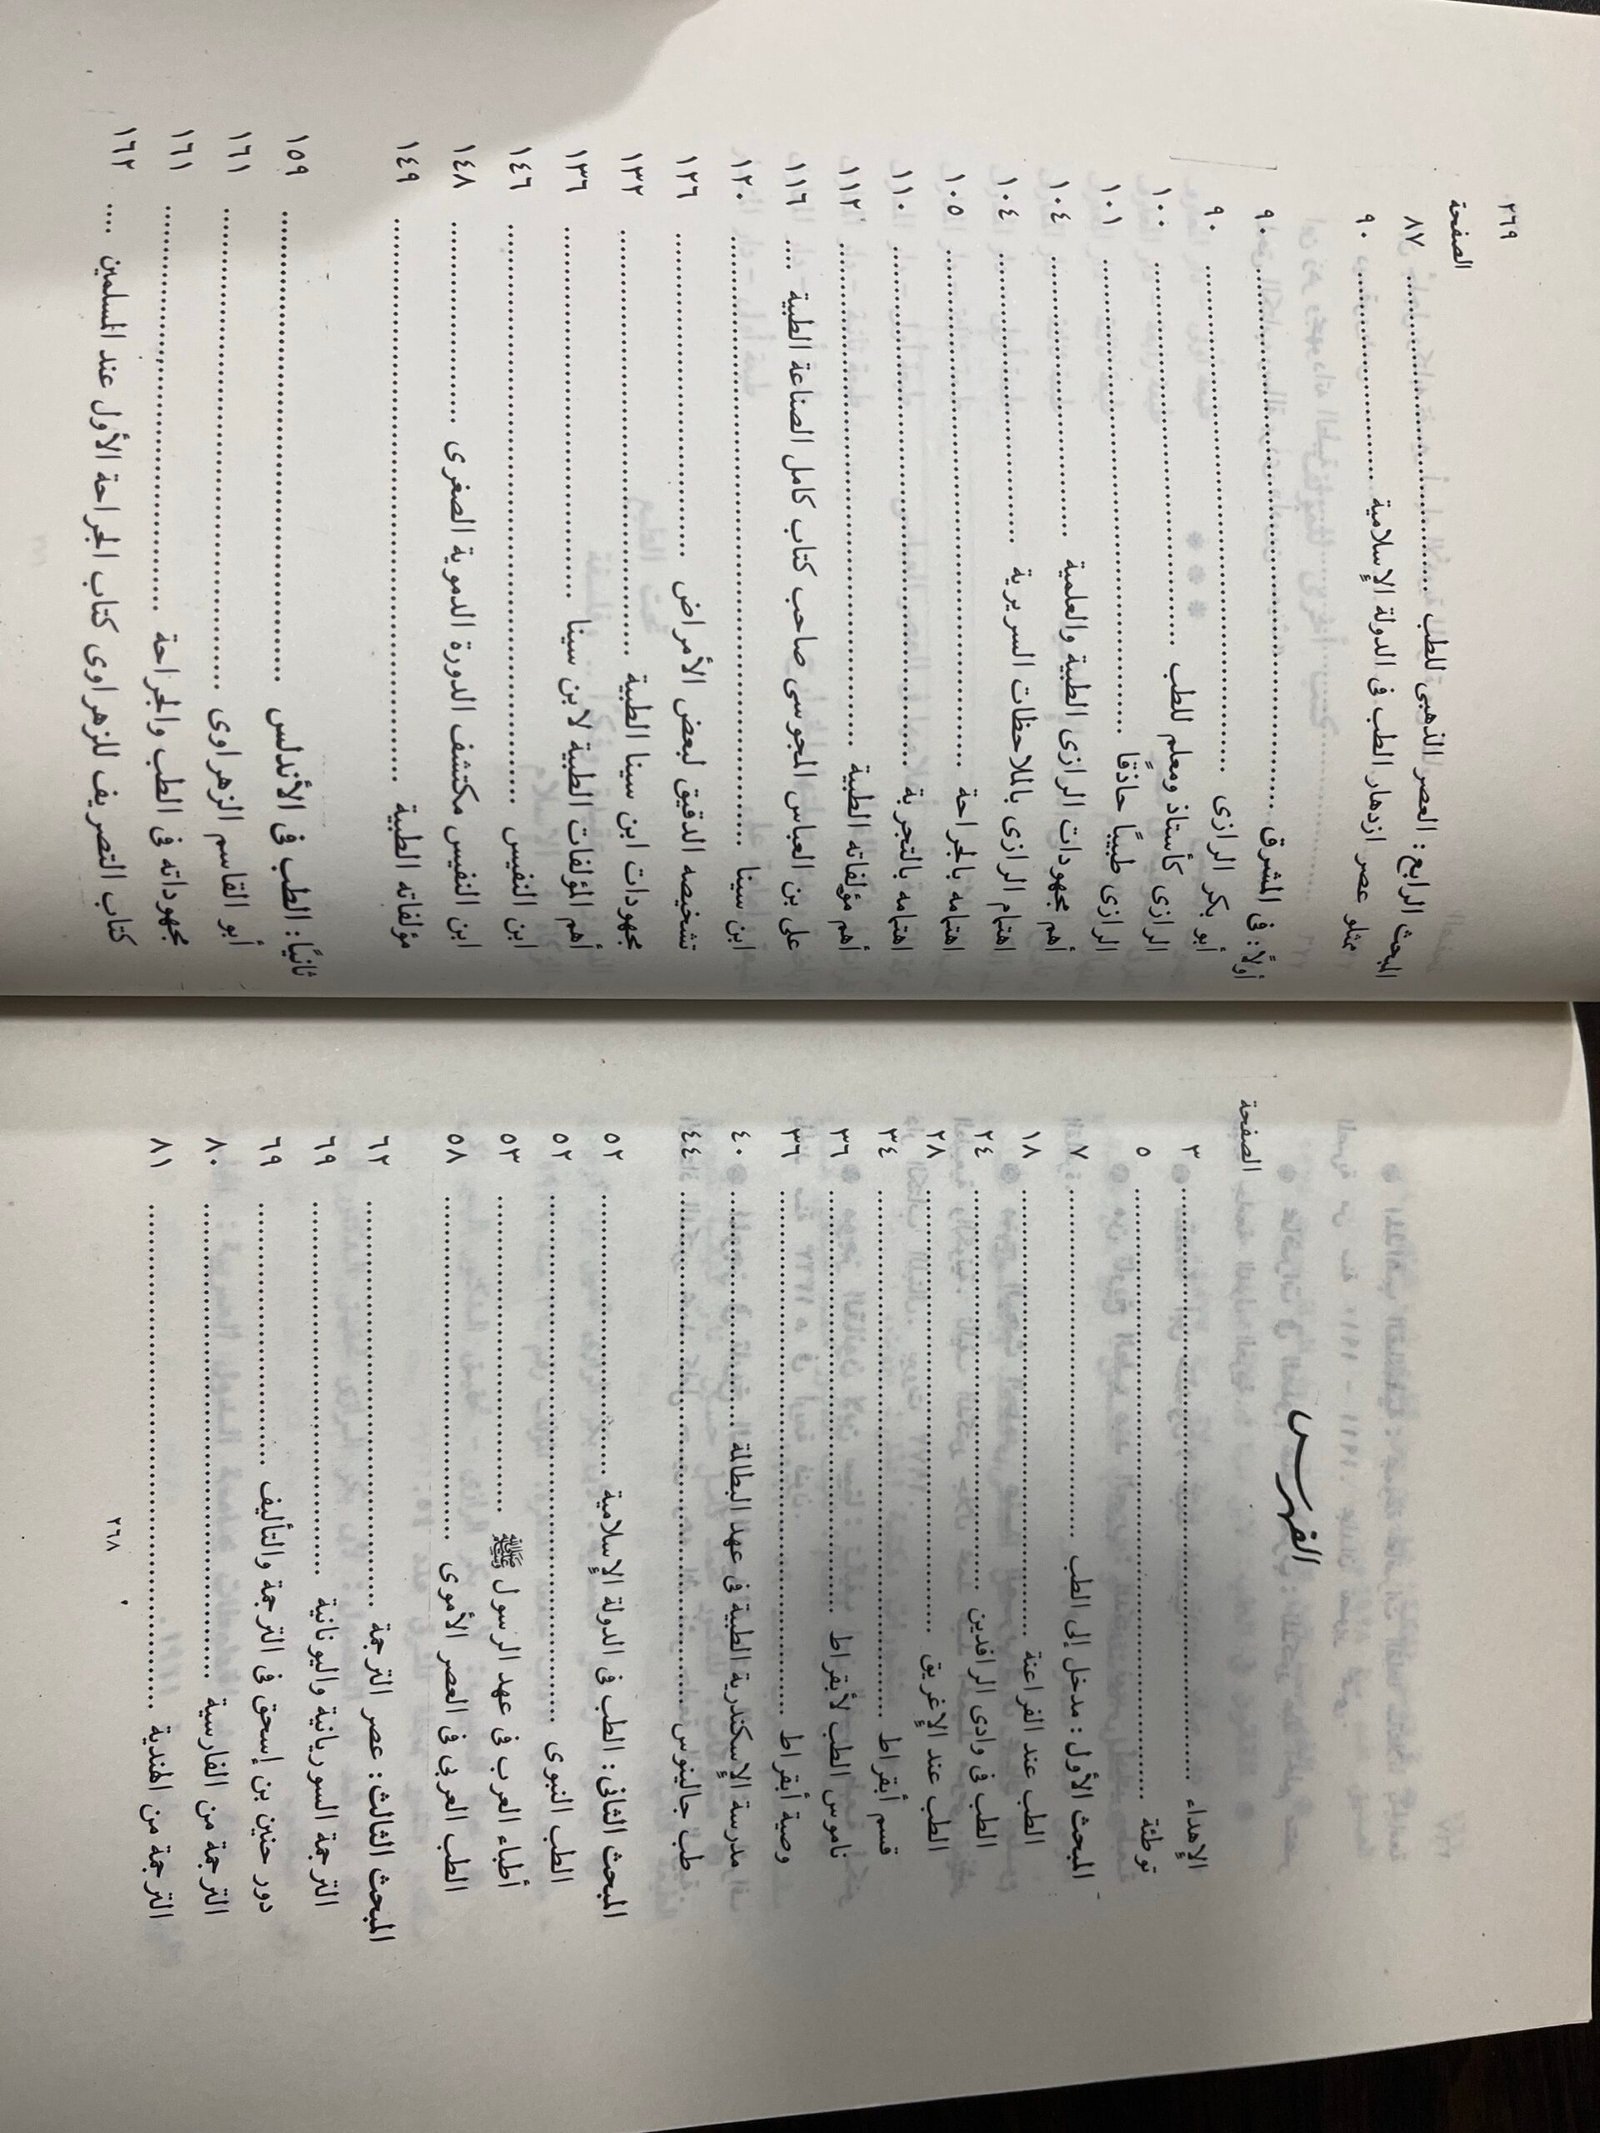 الفهرس
الصفحة
الإهداء ................ ٣
توطئة ................ ٥
المبحث الأول: مدخل إلى الطب ................ ٧
الطب عند الفراعنة ................ ١٨
الطب فى وادى الرافدين ................ ٢٤
الطب عند الإغريق ................ ٢٨
قسم أبقراط ................ ٣٤
ناموس الطب لأبقراط ................ ٣٦
وصية أبقراط ................ ٣٦
مدرسة الإسكندرية الطبية فى عهد البطالمة ................ ٤٠
طب جالينوس ................ ٤٤
المبحث الثانى: الطب فى الدولة الإسلامية ................ ٥٢
الطب النبوى ................ ٥٢
أطباء العرب فى عهد الرسول ﷺ ................ ٥٣
الطب العربى فى العصر الأموى ................ ٥٨
المبحث الثالث: عصر الترجمة ................ ٦٢
الترجمة السوريانية واليونانية ................ ٦٩
دور حنين بن إسحق فى الترجمة والتأليف ................ ٦٩
الترجمة من الفارسية ................ ٨٠
الترجمة من الهندية ................ ٨١
٢٦٨
٢٦٩
الصفحة
المبحث الرابع: العصر الذهبى للطب ................ ٨٧
ممثلو عصر ازدهار الطب فى الدولة الإسلامية ................ ٩٠
أولاً: فى المشرق ................ ٩٠
أبو بكر الرازى ................ ٩٠
الرازى كأستاذ ومعلم للطب ................ ١٠٠
الرازى طبيبًا حاذقًا ................ ١٠١
أهم مجهودات الرازى الطبية والعلمية ................ ١٠٤
اهتمام الرازى بالملاحظات السريرية ................ ١٠٤
اهتمامه بالجراحة ................ ١٠٥
اهتمامه بالتجربة ................ ١١٠
أهم مؤلفاته الطبية ................ ١١٢
على بن العباس المجوسى صاحب كتاب كامل الصناعة الطبية .... ١١٦
ابن سينا ................ ١٢٠
تشخيصه الدقيق لبعض الأمراض ................ ١٢٦
مجهودات ابن سينا الطبية ................ ١٣٢
أهم المؤلفات الطبية لابن سينا ................ ١٣٦
ابن النفيس ................ ١٤٦
ابن النفيس مكتشف الدورة الدموية الصغرى ................ ١٤٨
مؤلفاته الطبية ................ ١٤٩
ثانيًا: الطب فى الأندلس ................ ١٥٩
أبو القاسم الزهراوى ................ ١٦١
مجهوداته فى الطب والجراحة ................ ١٦١
كتاب التصريف للزهراوى كتاب الجراحة الأول عند المسلمين .... ١٦٢